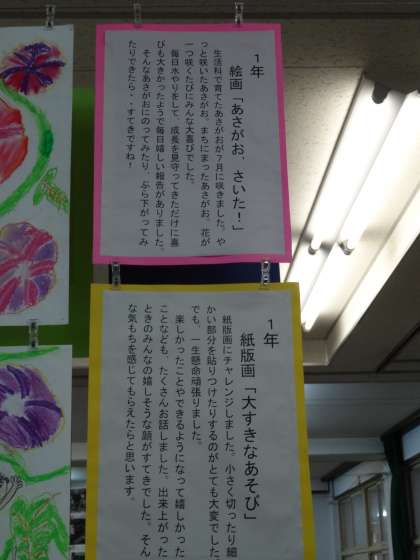 1年
絵画「あさがお、さいた！」
生活科で育てたあさがおが7月に咲きました。や
っと咲いたあさがお。まちにまったあさがお。花が
一つ咲くたびにみんな大喜びでした。
毎日水やりをして、成長を見守ってきただけに喜
びも大きかったようで毎日嬉しい報告がありました。
そんなあさがおにのってみたり、ぶら下がってみ
たりできたら・・すてきですね！
1年
紙版画「大すきなあそび」
紙版画にチャレンジしました。小さく切ったり細
かい部分を貼りつけたりするのがとても大変でした
でも、一生懸命頑張りました。
楽しかったことやできるようになって嬉しかった
ことなども、たくさんお話しました。出来上がった
ときのみんなの嬉しそうな顔がすてきでした。そん
な気もちを感じてもらえたらと思います。